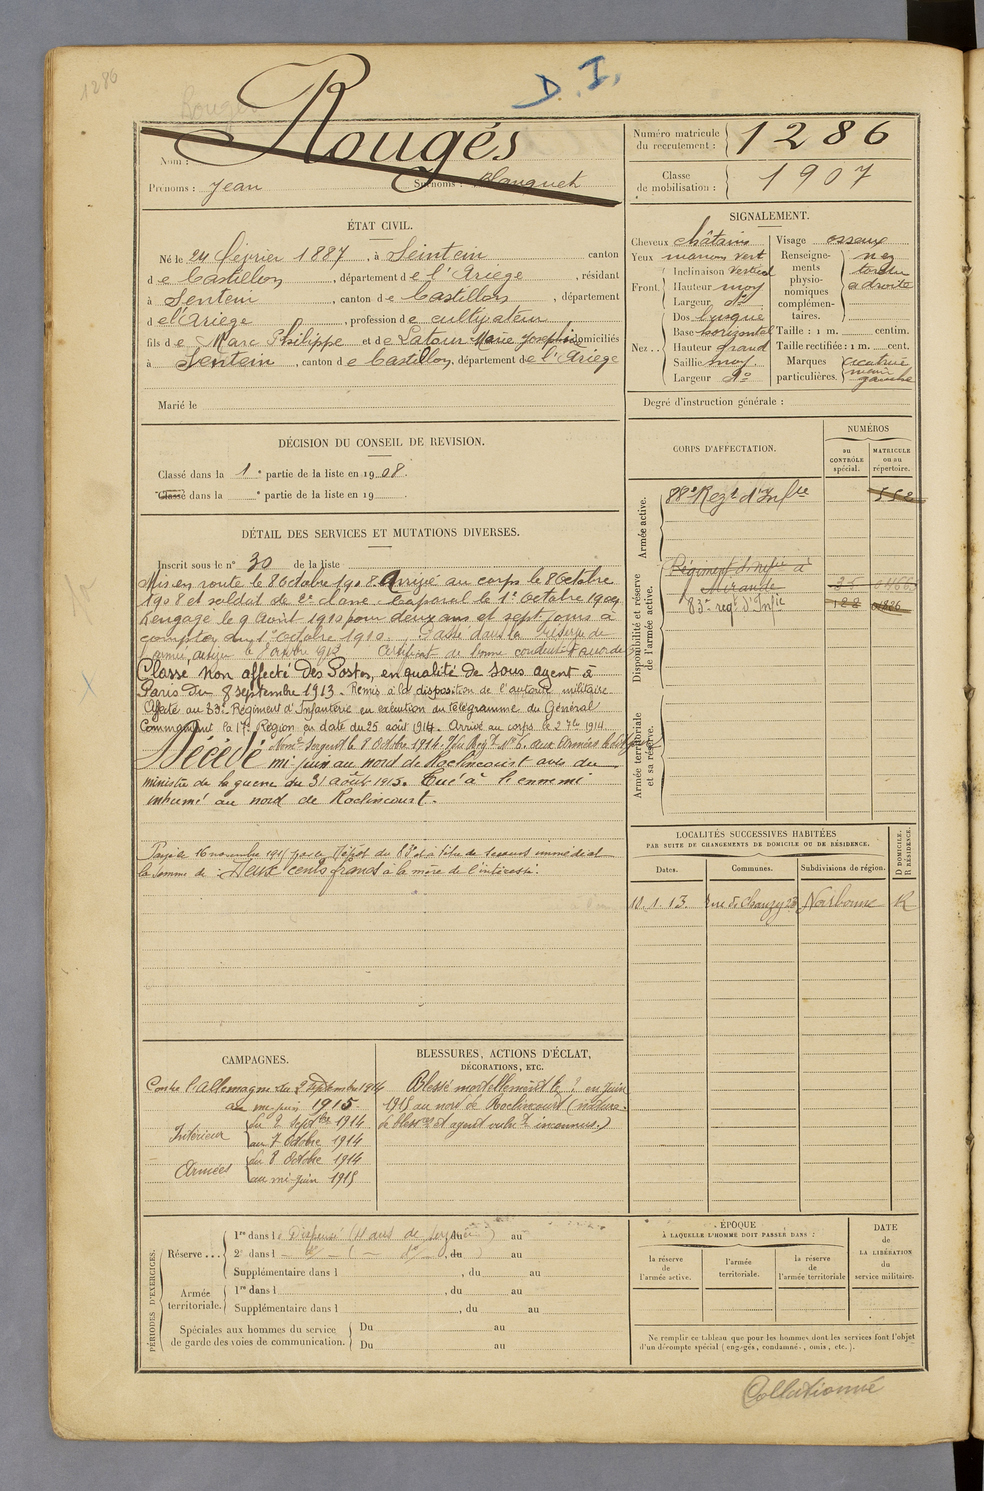 1286
D. I.
Rougés
Nom :
Prénoms : Jean Surnoms : Blanquet
Numéro matricule du recrutement : 1286
Classe de mobilisation : 1907
ÉTAT CIVIL.
Né le 24 février 1887, à Seintein canton
de Castillon, département de l'Ariège, résidant
à Sentein, canton de Castillon, département
de l'Ariège, profession de cultivateur
fils de Marc Philippe et de Latour Marie Josephine domiciliés
à Sentein, canton de Castillon, département de l'Ariège
Marié le
SIGNALEMENT.
Cheveux châtains
Yeux marron vert
Front. Inclinaison vertical
Hauteur moy
Largeur do
Nez .. Dos busqué
Base horizontal
Hauteur grand
Saillie moy.
Largeur do
Visage osseux
Renseignements physionomiques complémentaires. nez tordu à droite
Taille : 1 m. centim.
Taille rectifiée : 1 m. cent.
Marques particulières. cicatrice main gauche
Degré d'instruction générale :
DÉCISION DU CONSEIL DE REVISION.
Classé dans la 1e partie de la liste en 1908.
Classé dans la e partie de la liste en 19
CORPS D'AFFECTATION.
NUMÉROS
au CONTRÔLE spécial.
MATRICULE ou au répertoire.
Armée active.
88e Regt d'Infie 552
Disponibilité et réserve de l'armée active.
Régiment d'infie à
Mirande
83me regt d'Infie
Armée territoriale et sa réserve.
DÉTAIL DES SERVICES ET MUTATIONS DIVERSES.
Inscrit sous le n° 30 de la liste
Mis en route le 8 Octobre 1908. Arrivé au corps le 8 Octobre
1908 et soldat de 2e classe. Caporal le 1er Octobre 1909
Rengagé le 9 Avril 1910 pour deux ans et sept jours à
compter du 1er Octobre 1910. Passé dans la Réserve de
l'armée active le 8 octobre 1912 Certificat de bonne conduite accordé
Classé non affecté des Postes, en qualité de sous agent à
Paris du 8 septembre 1913. Remis à la disposition de l'autorité militaire
Affecté au 83e Régiment d'Infanterie en exécution du télégramme du Général
Commandant la 17e Région en date du 25 août 1914. Arrivé au corps le 2 7bre 1914.
Nommé Sergent le 8 Octobre 1914. aux Armées le dit jour
Décédé mi-juin au nord de Roclincourt avis du
ministre de la guerre du 31 août 1915. Tué à l'ennemi
inhumé au nord de Roclincourt.
Payé le 16 novembre 1915 par le Dépôt du 83e à titre de secours immédiat
la somme de : Deux cents francs à la mère de l'intéressé.
LOCALITÉS SUCCESSIVES HABITÉES
PAR SUITE DE CHANGEMENTS DE DOMICILE OU DE RÉSIDENCE.
Dates. Communes. Subdivisions de région. D DOMICILE. R RÉSIDENCE.
11.1.13. rue de Chanzy 23 Narbonne R
CAMPAGNES.
Contre l'Allemagne du 2 Septembre 1914
au mi-juin 1915.
Intérieur du 2 Septbre 1914
au 7 Octobre 1914
Armées du 8 Octobre 1914
au mi-juin 1915
BLESSURES, ACTIONS D'ÉCLAT,
DÉCORATIONS, ETC.
Blessé mortellement le ? en juin
1915 au nord de Roclincourt (nature
de blessre et agent vulnt inconnus.)
PÉRIODES D'EXERCICES.
Réserve ... 1re dans l Dispensé (4 ans de service) du au
2e dans l do ( — do — ), du au
Supplémentaire dans l , du au
Armée territoriale. 1re dans l , du au
Supplémentaire dans l , du au
Spéciales aux hommes du service de garde des voies de communication. Du au
Du au
ÉPOQUE
À LAQUELLE L'HOMME DOIT PASSER DANS :
la réserve de l'armée active.
l'armée territoriale.
la réserve de l'armée territoriale
DATE DE LA LIBÉRATION du service militaire.
Ne remplir ce tableau que pour les hommes dont les services font l'objet
d'un décompte spécial (engagés, condamnés, omis, etc.).
Collationné